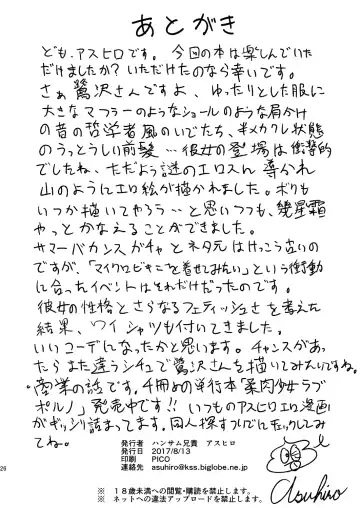 あとがき
ども、アスヒロです。今回の本は楽しんでいた
だけましたか?いただけたのなら幸いです。
さぁ鷺沢さんですよ、ゆったりとした服に
大きなマフラーのようなショールのような肩かけ
の昔の哲学者風のいでたち、半メカクレ状態
のうっとうしい前髪…彼女の登場は衝撃的
でしたね、ただよう謎のエロスに導かれ
山のようにエロ絵が描かれました。ボクも
いつか描いてやろう…と思いつつも、幾星霜
やっとかなえることができました。
サマーバカンスガチャとネタ元はけっこう古いの
ですが、「マイクロビキニを着せてみたい」という衝動
に合ったイベントはそれだけだったのです。
彼女の性格とさらなるフェティッシュさを考えた
結果、ワイシャツも付いてきました。
いいコーデになったかと思います。チャンスがあっ
たらまた違うシチュで鷺沢さんを描いてみたいですね。
・商業の話です。4冊めの単行本「薬肉少女ラブ
ポルノ」発売中です!!いつものアスヒロエロ漫画
がギッシリ詰まってます。同人探すついでにたックしてみ
てね。
発行者 ハンサム兄貴 アスヒロ
発行日 2017/8/13
印刷 PICO
連絡先 asuhiro@kss.biglobe.ne.jp
Asuhiro
26
※ 18歳未満への閲覧・購読を禁止します。
※ ネットへの違法アップロードを禁止します。